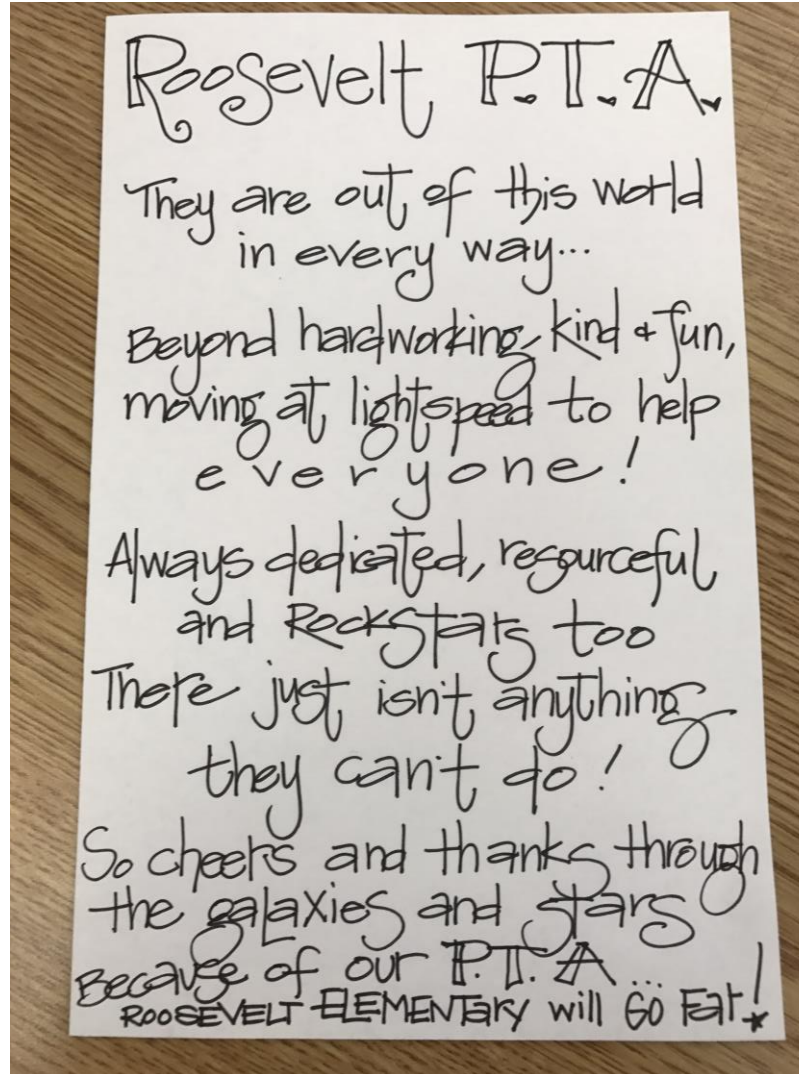 Roosevelt P.T.A.
They are out of this world
in every way...
Beyond hardworking, kind + fun,
moving at lightspeed to help
everyone!
Always dedicated, resourceful
and Rockstars too
There just isn't anything
they can't do!
So cheers and thanks through
the galaxies and stars
Because of our P.T.A...
ROOSEVELT ELEMENTary will GO Far!